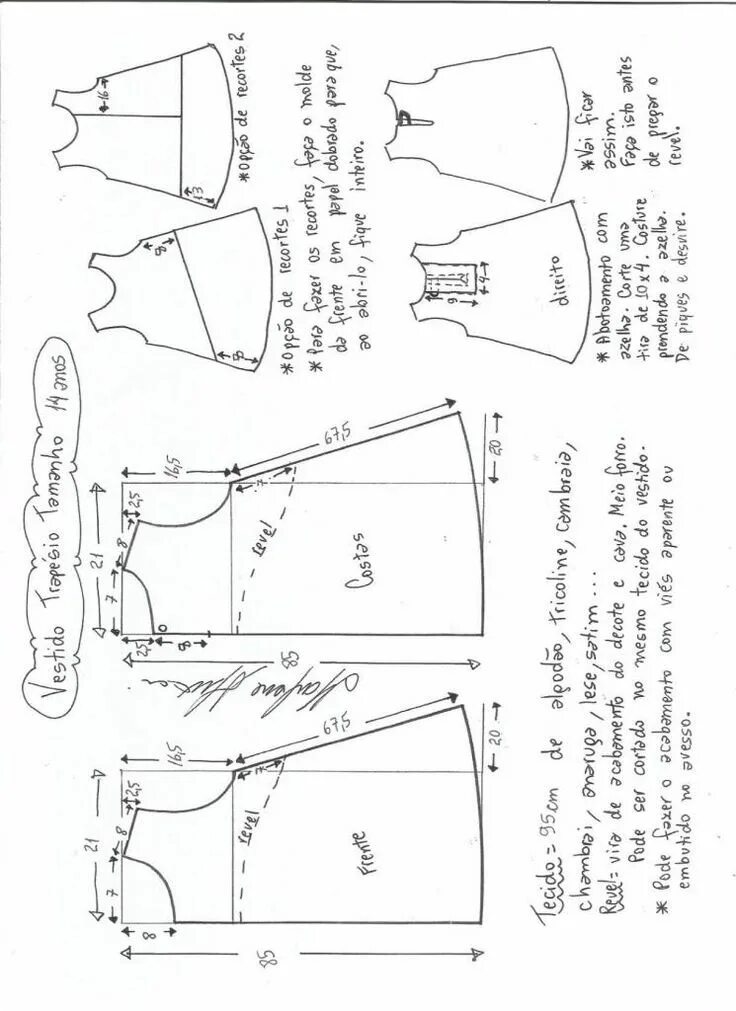 Vestido Trapésio Tamanho 14 anos
21
7
8
2,5
8
16,5
7
revel
67,5
Frente
85
20
21
7
8
2,5
2,5
8
16,5
7
revel
67,5
Costas
85
20
8
8
*Opção de recortes 1
16
13
*Opção de recortes 2
* Para fazer os recortes, faça o molde
da frente em papel dobrado para que,
ao abri-lo, fique inteiro.
9
4
direito
* Abotoamento com
azelha. Corte uma
tira de 10x4. Costure
prendendo a azelha.
De piques e desvire.
*Vai ficar
assim.
Faça isto antes
de prepar o
revel.
Tecido = 95cm de algodão, tricoline, cambraia,
chambrai, anaruga, lese, satim ...
Revel = vira de acabamento do decote e cava. Meio forro.
Pode ser cortado no mesmo tecido do vestido.
* Pode fazer o acabamento com viés aparente ou
embutido no avesso.